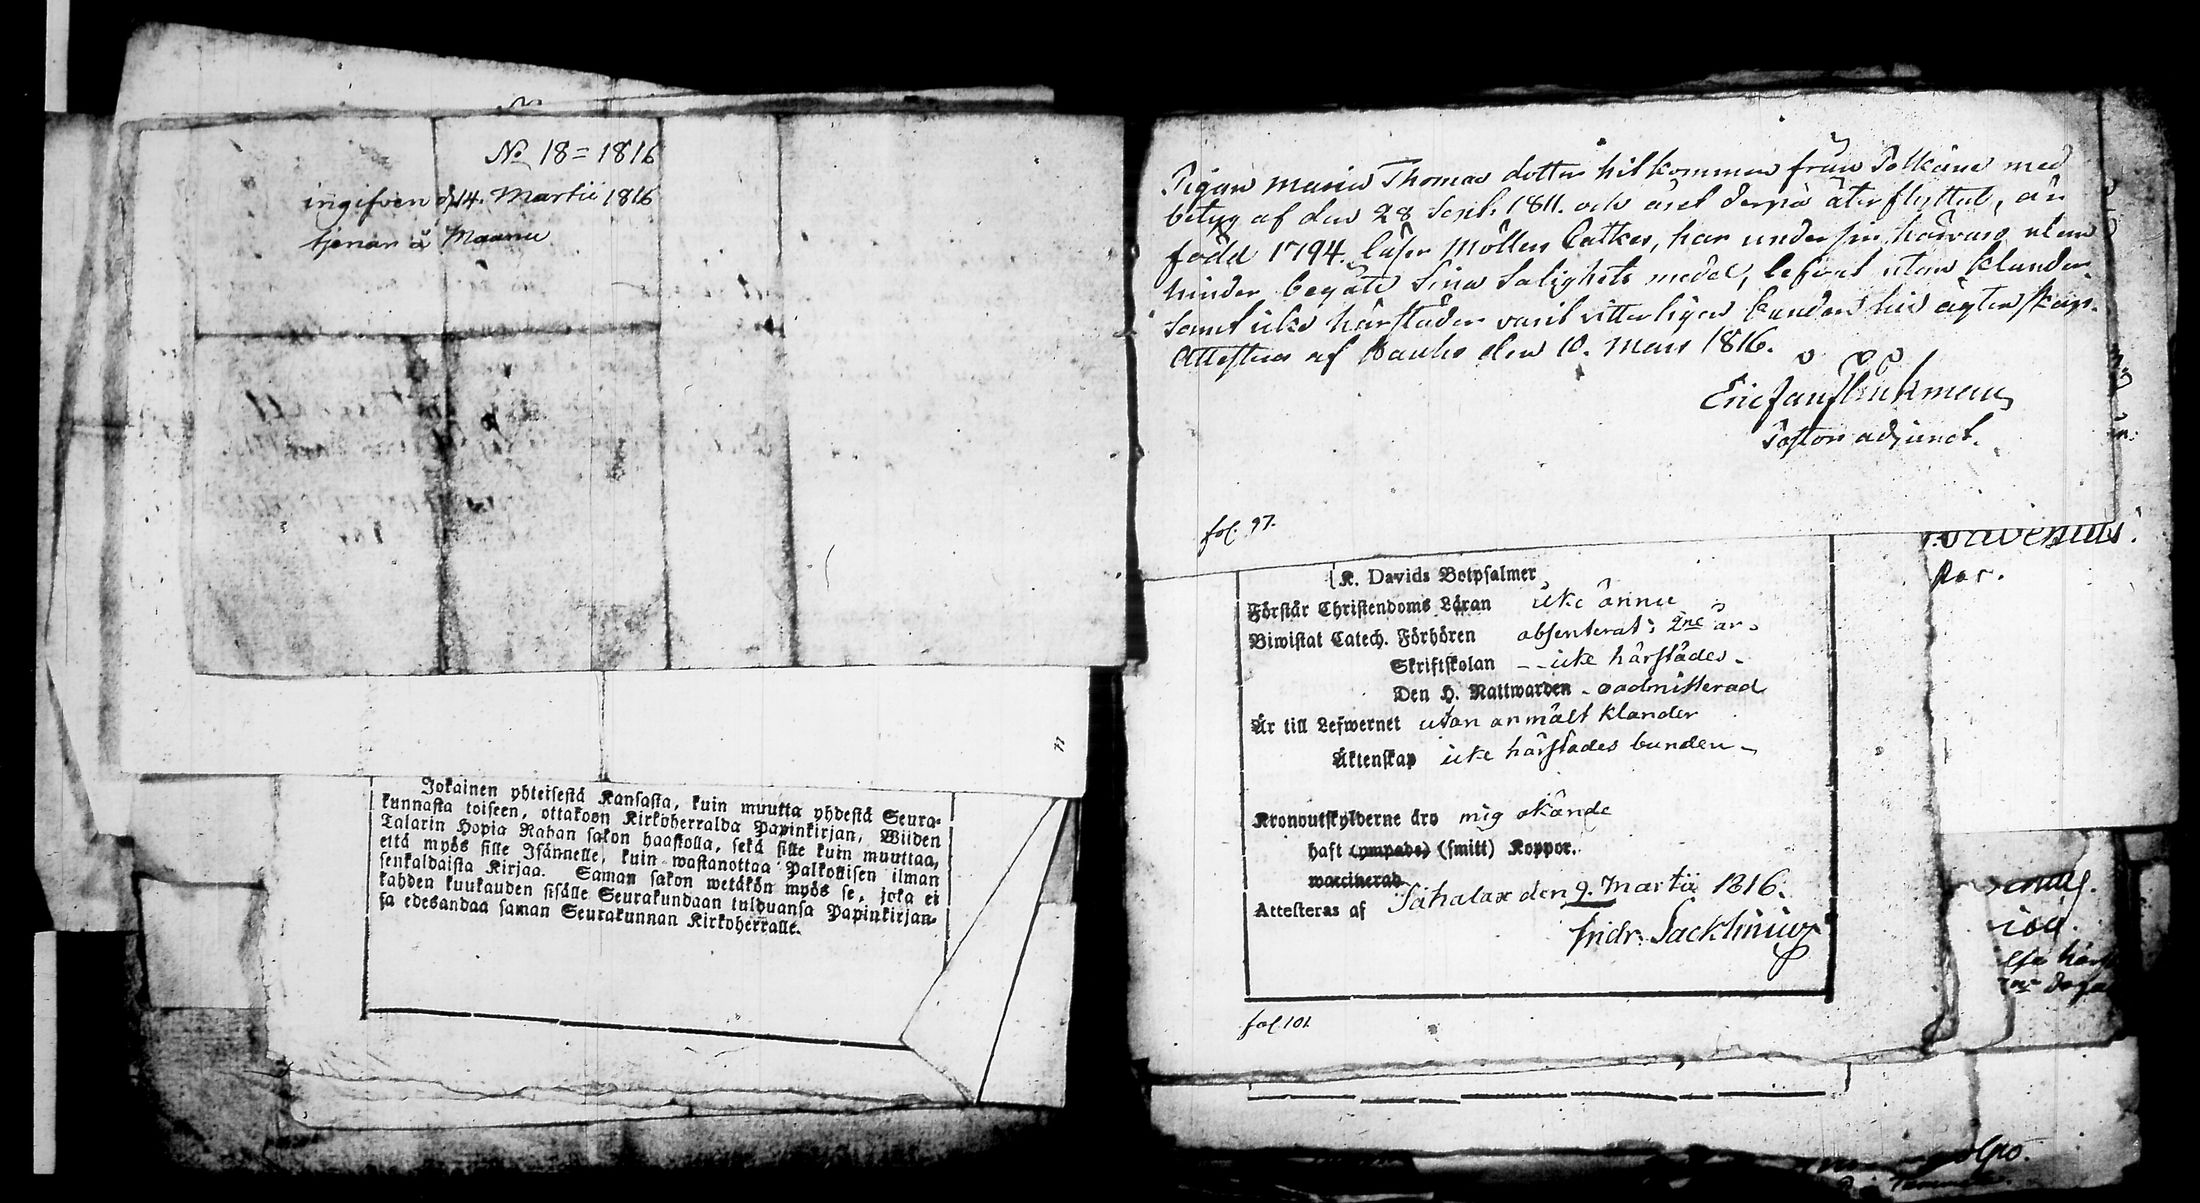 No 18 = 1816
ingifven d. 14. Martii 1816
tjenar å Maanu
Jokainen yhteisestä Kansasta, kuin muutta yhdestä Seura-
kunnasta toiseen, ottakoon Kirkoherralda Papinkirjan, Wiiden
Talarin Hopia Rahan sakon haastolla, sekä sille kuin muuttaa,
että myös sille Isännelle, kuin wastanottaa Palkollisen ilman
senkaldaista Kirjaa. Saman sakon wetäkön myös se, joka ei
kahden kuukauden sisälle Seurakundaan tulduansa Papinkirjan-
sa edesandaa saman Seurakunnan Kirkoherralle.
Pigan Maria Thomas dotter hitkommen från Pelkäne med
betyg af den 28 Sept. 1811. och året derpå återflyttat, är
född 1794. läser Möllers Catkes, har under sin härvaro utan
hinder begått sina Salighets medel, lefvat utan klander
samt icke härstädes varit vitterligen bunden till ägtenskap.
Attesteras af Sauho den 10. Mars 1816.
Eric Jan
Pastors adjunct.
fol. 97.
K. Davids Botpsalmer
Förstår Christendoms Läran icke ännu
Biwistat Catech. Förhören absenterat i 2ne år.
Skriftskolan - - icke härstädes -
Den H. Nattwarden - oadmitterad
Är till Lefwernet utan anmält klander
Äktenskap icke härstädes bunden -
Kronoutskylderne äro mig okände
haft (ympade) (smitt) Koppor.
waccinerad
Attesteras af Sahalax den 9. Martii 1816.
Fridr. Sacklinius
fol. 101